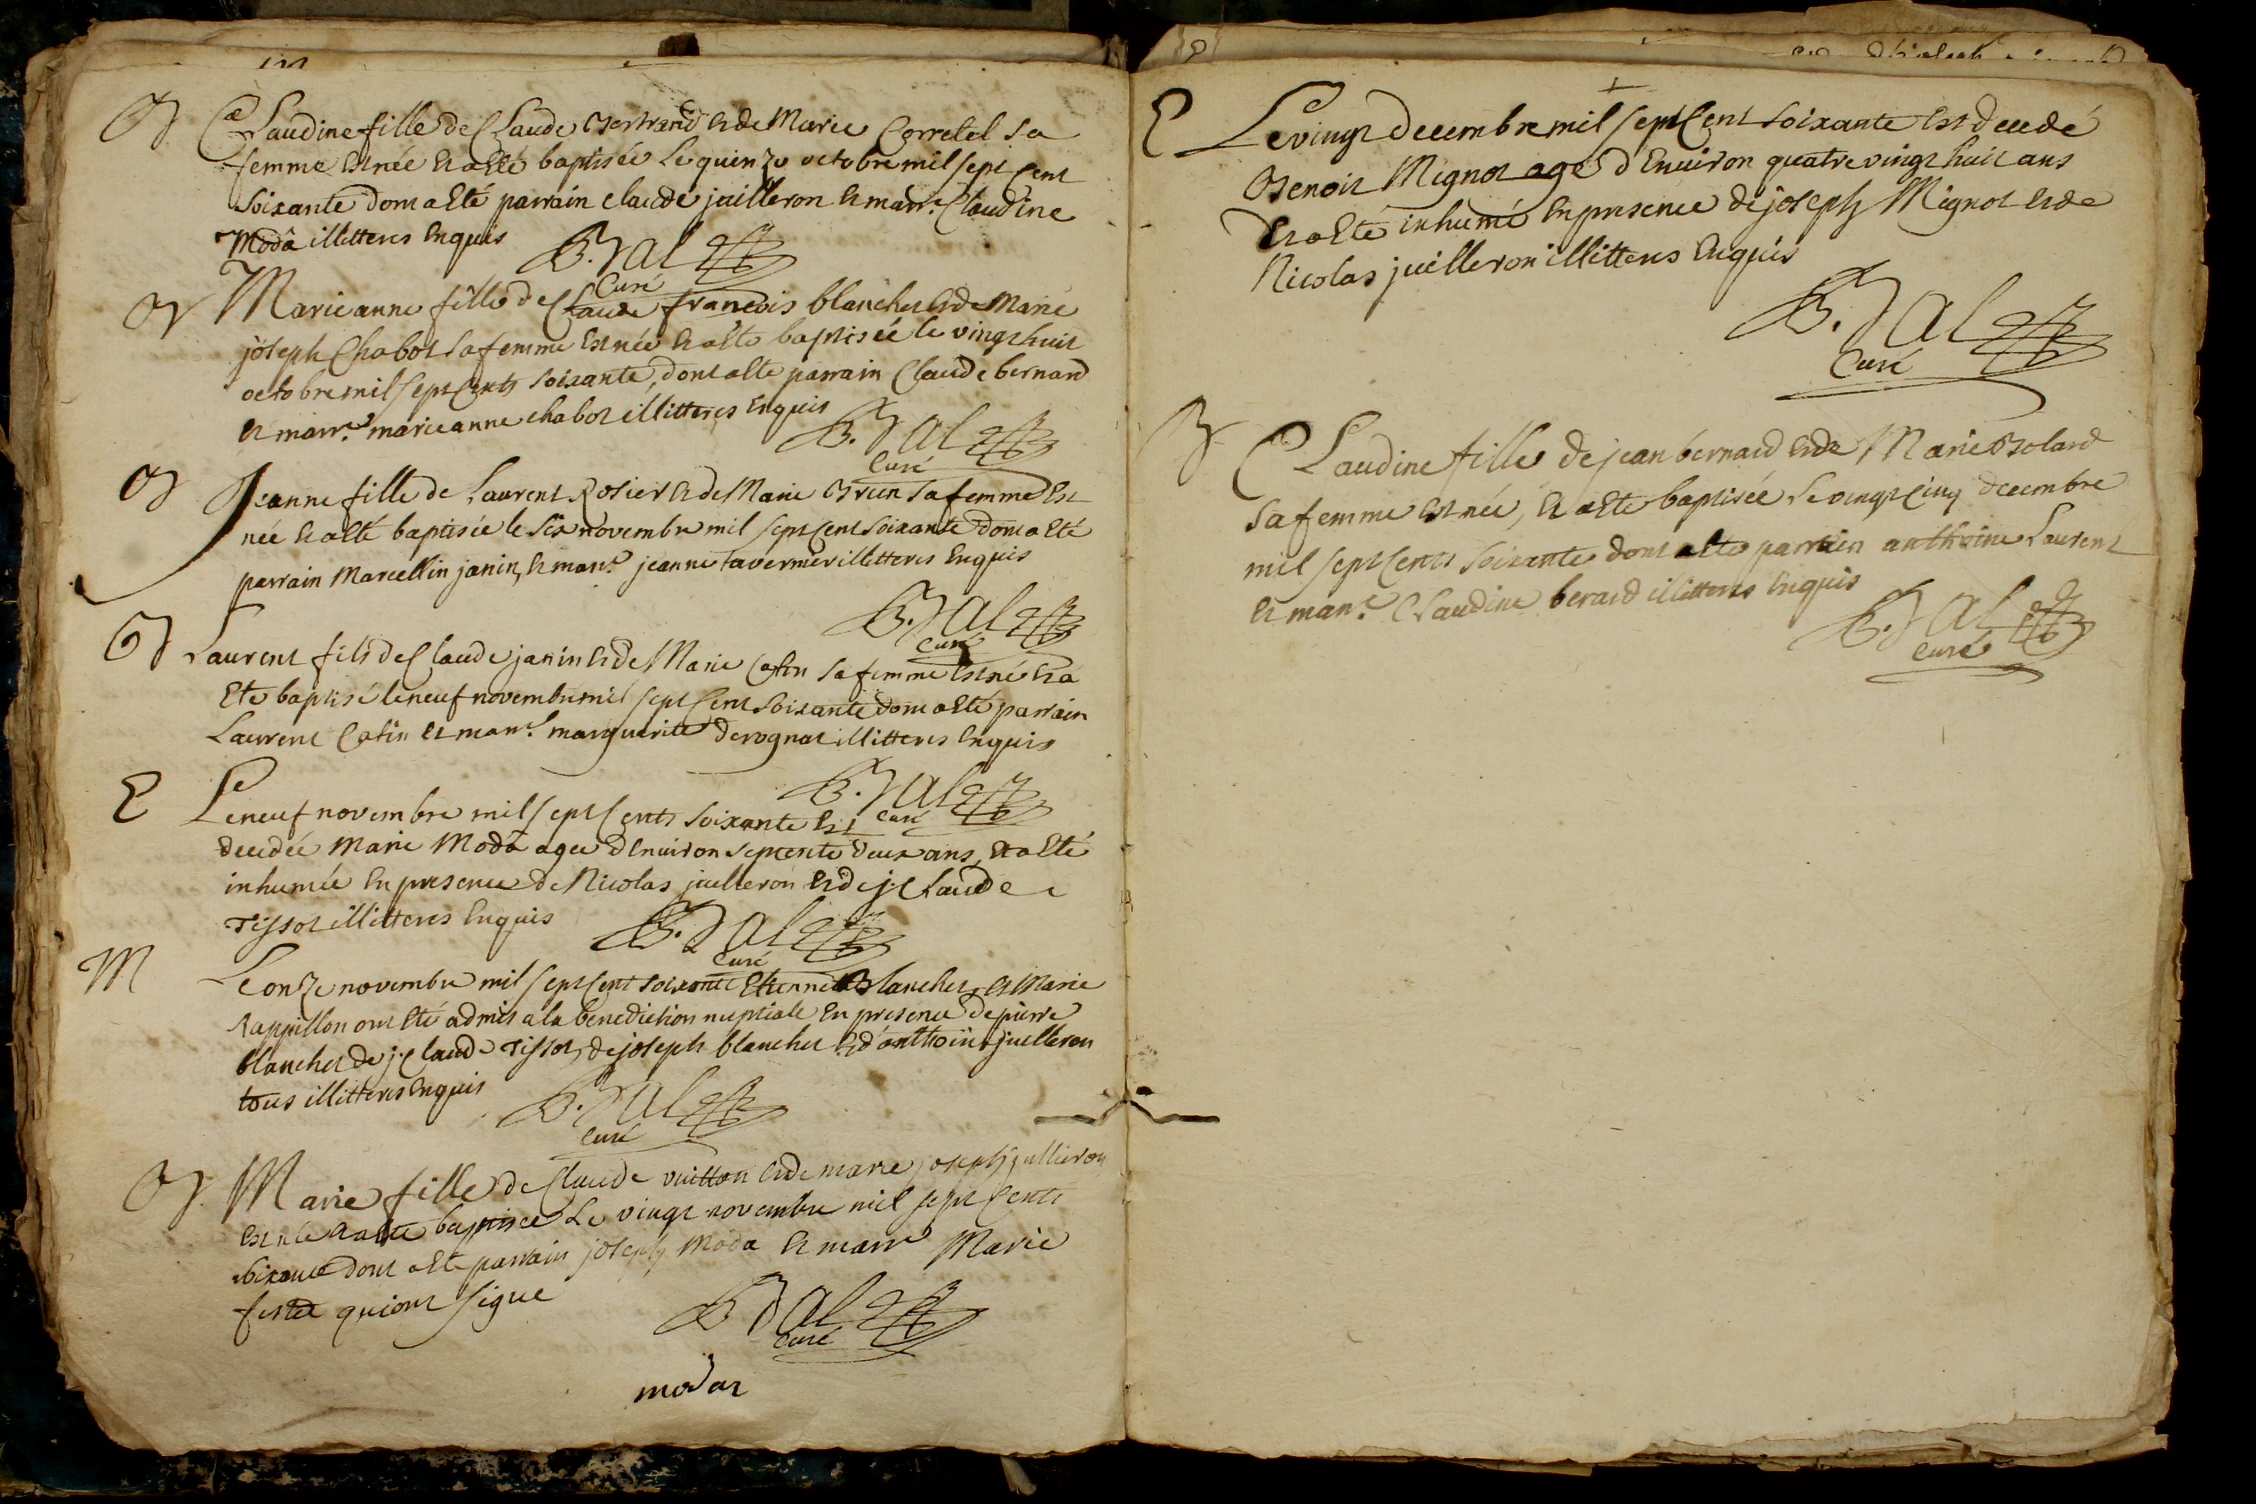 B Claudine fille de Claude Bertrand et de Marie Corretel sa
femme est née et a eté baptisée le quinze octobre mil sept cent
soixante dont a eté parrain claude juilleron et marr.e Claudine
Modâ illitteres enquis
B. Jal
Curé
B Marie anne fille de Claude francois blanchet et de Marie
joseph Chabot sa femme est née et a eté baptisée le vingt huit
octobre mil sept cents soixante, dont a eté parrain Claude bernard
et marr.e marie anne chabot illitteres enquis
B. Jal
Curé
B Jeanne fille de Laurent Rosier et de Marie Brun sa femme est
née et a eté baptisée le six novembre mil sept cent soixante dont a eté
parrain Marcellin janin, et marr.e jeanne tavernier illitteres enquis
B. Jal
Curé
B Laurent fils de Claude janin et de Marie Catin sa femme est né et a
eté baptisé le neuf novembre mil sept cent soixante dont a eté parrain
Laurent Catin et marr.e marguerite derognat illitteres enquis
B. Jal
Curé
E Le neuf novembre mil sept cents soixante est
decedée Marie Modâ agée d'environ septente deux ans, et a eté
inhumée en presence de Nicolas juilleron et de j. Claude
Tissot illitteres enquis
B. Jal
Curé
M Le onze novembre mil sept cent soixante Etienne Blanchet et Marie
Rappillon ont eté admis a la benediction nuptiale en presence de pierre
blanchet de j. claude Tissot, de joseph blanchet et d'anthoine juilleron
tous illitteres enquis
B. Jal
Curé
B. Marie fille de Claude vuitton et de marie joseph jullieron
est née et a eté baptisée le vingt novembre mil sept cents
soixante dont a eté parrain joseph Moda et marr.e Marie
qui ont signé
B Jal
Curé
modaz
E Le vingt decembre mil sept cent soixante est decedé
Benoit Mignot agé d'environ quatre vingt huit ans
et a eté inhumé en presence de joseph Mignot et de
Nicolas juilleron illitteres enquis
B. Jal
Curé
B Claudine fille de jean bernard et de Marie Bolard
sa femme est née, et a eté baptisée le vingt cinq decembre
mil sept cents soixante dont a eté parrain anthoine Laurent
et marr.e Claudine berard illitteres enquis
B. Jal
Curé